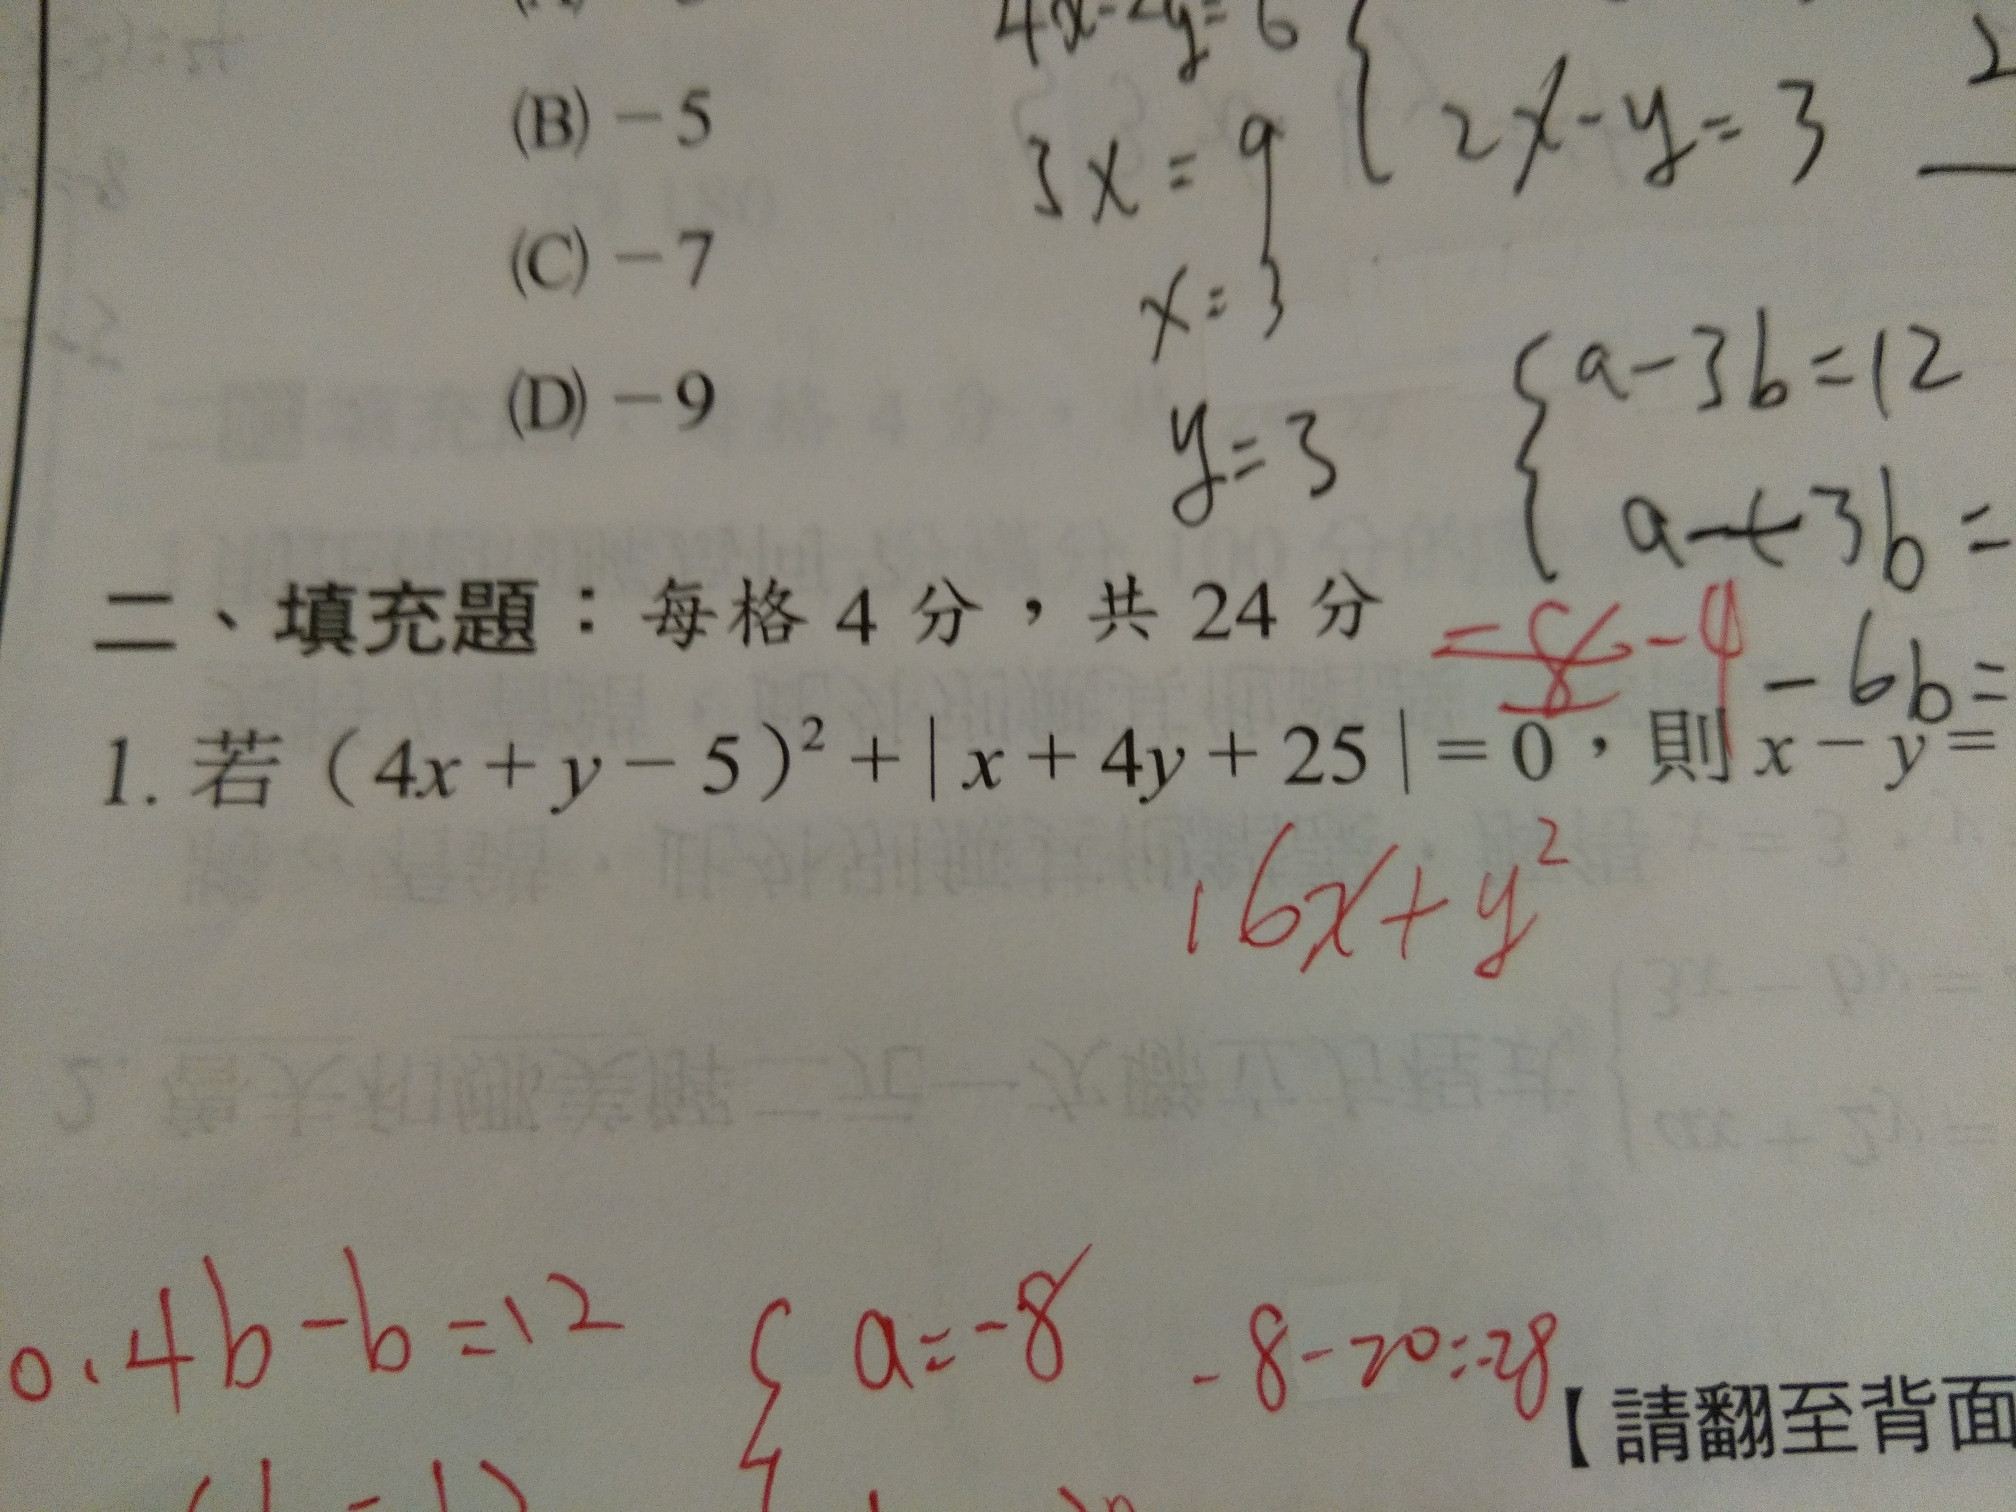 4x-2y=6
2x-y=3
2
(B) -5
3x=9
(C) -7
x=3
(D) -9
y=3
a-3b=12
a+3b=
-6b=
二、填充題：每格 4 分，共 24 分
1. 若（4x+y-5）²+|x+4y+25|=0，則 x-y=
16x+y²
0.4b-b=12
a=-8
-8-20=-28
【請翻至背面